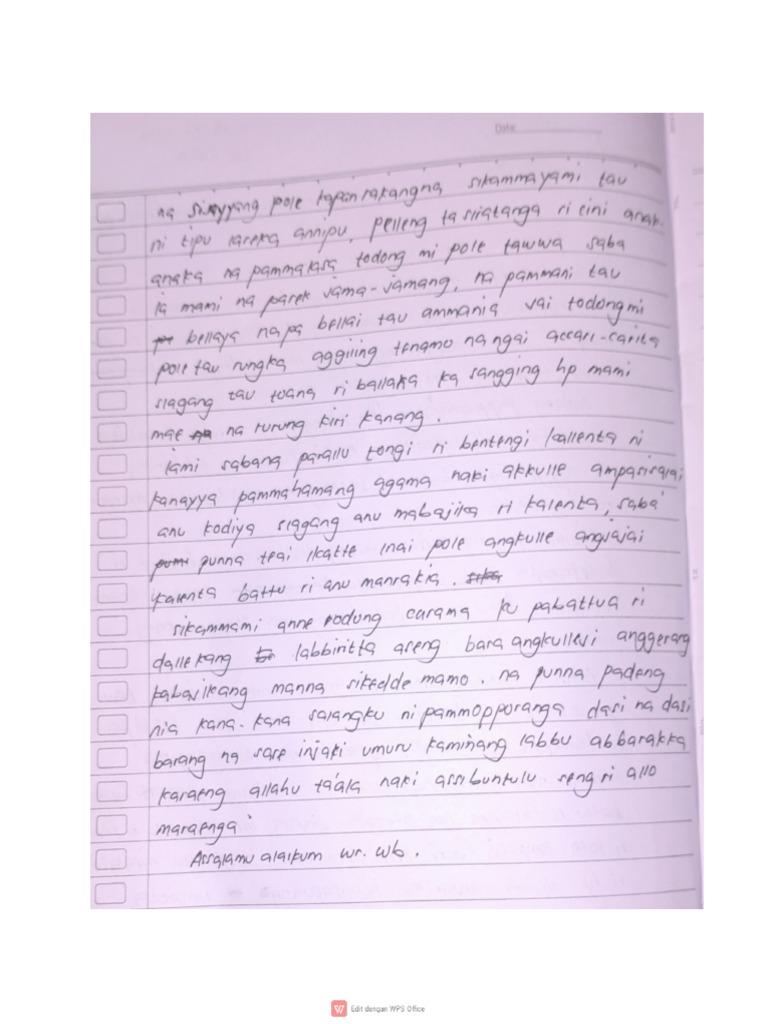 Date:
na sikayyang pole tapanrakangna sikammayami tau
ni tipu lareka annipu, pelleng ta siiatanga ri cini anak-
anaka na pammakasa todong mi pole tawwa saba
la mami na parek jama-jamang, na pammani tau
bellaya napa bellai tau ammania vai todongmi
pole tau rungka aggiling tenamo na ngai accari-carita
siagang tau toana ri ballaka ka sangging hp mami
mae na rurung kiri kanang.
iami sabana parallu tongi ri bentengi kallenta ri
kanayya pammahamang agama naki akkulle ampasisalai
anu kodiya siagang anu mabajika ri kalenta, saba'
punna teai ikatte inai pole angkulle angjajai
kalenta battu ri anu manrakia.
sikammami anne rodung carama ku pabattua ri
dallekang labbiritta areng bara angkullei anggerang
kabajikang manna sikedde mamo. na punna padeng
nia kana-kana salangku ni pammopporanga dasi na dasi
barang na sare injaki umuru kaminang labbu abbarakka
karaeng allahu ta'ala naki assibuntulu seng ri allo
maraenga'
Assalamu alaikum wr. wb.
Edit dengan WPS Office